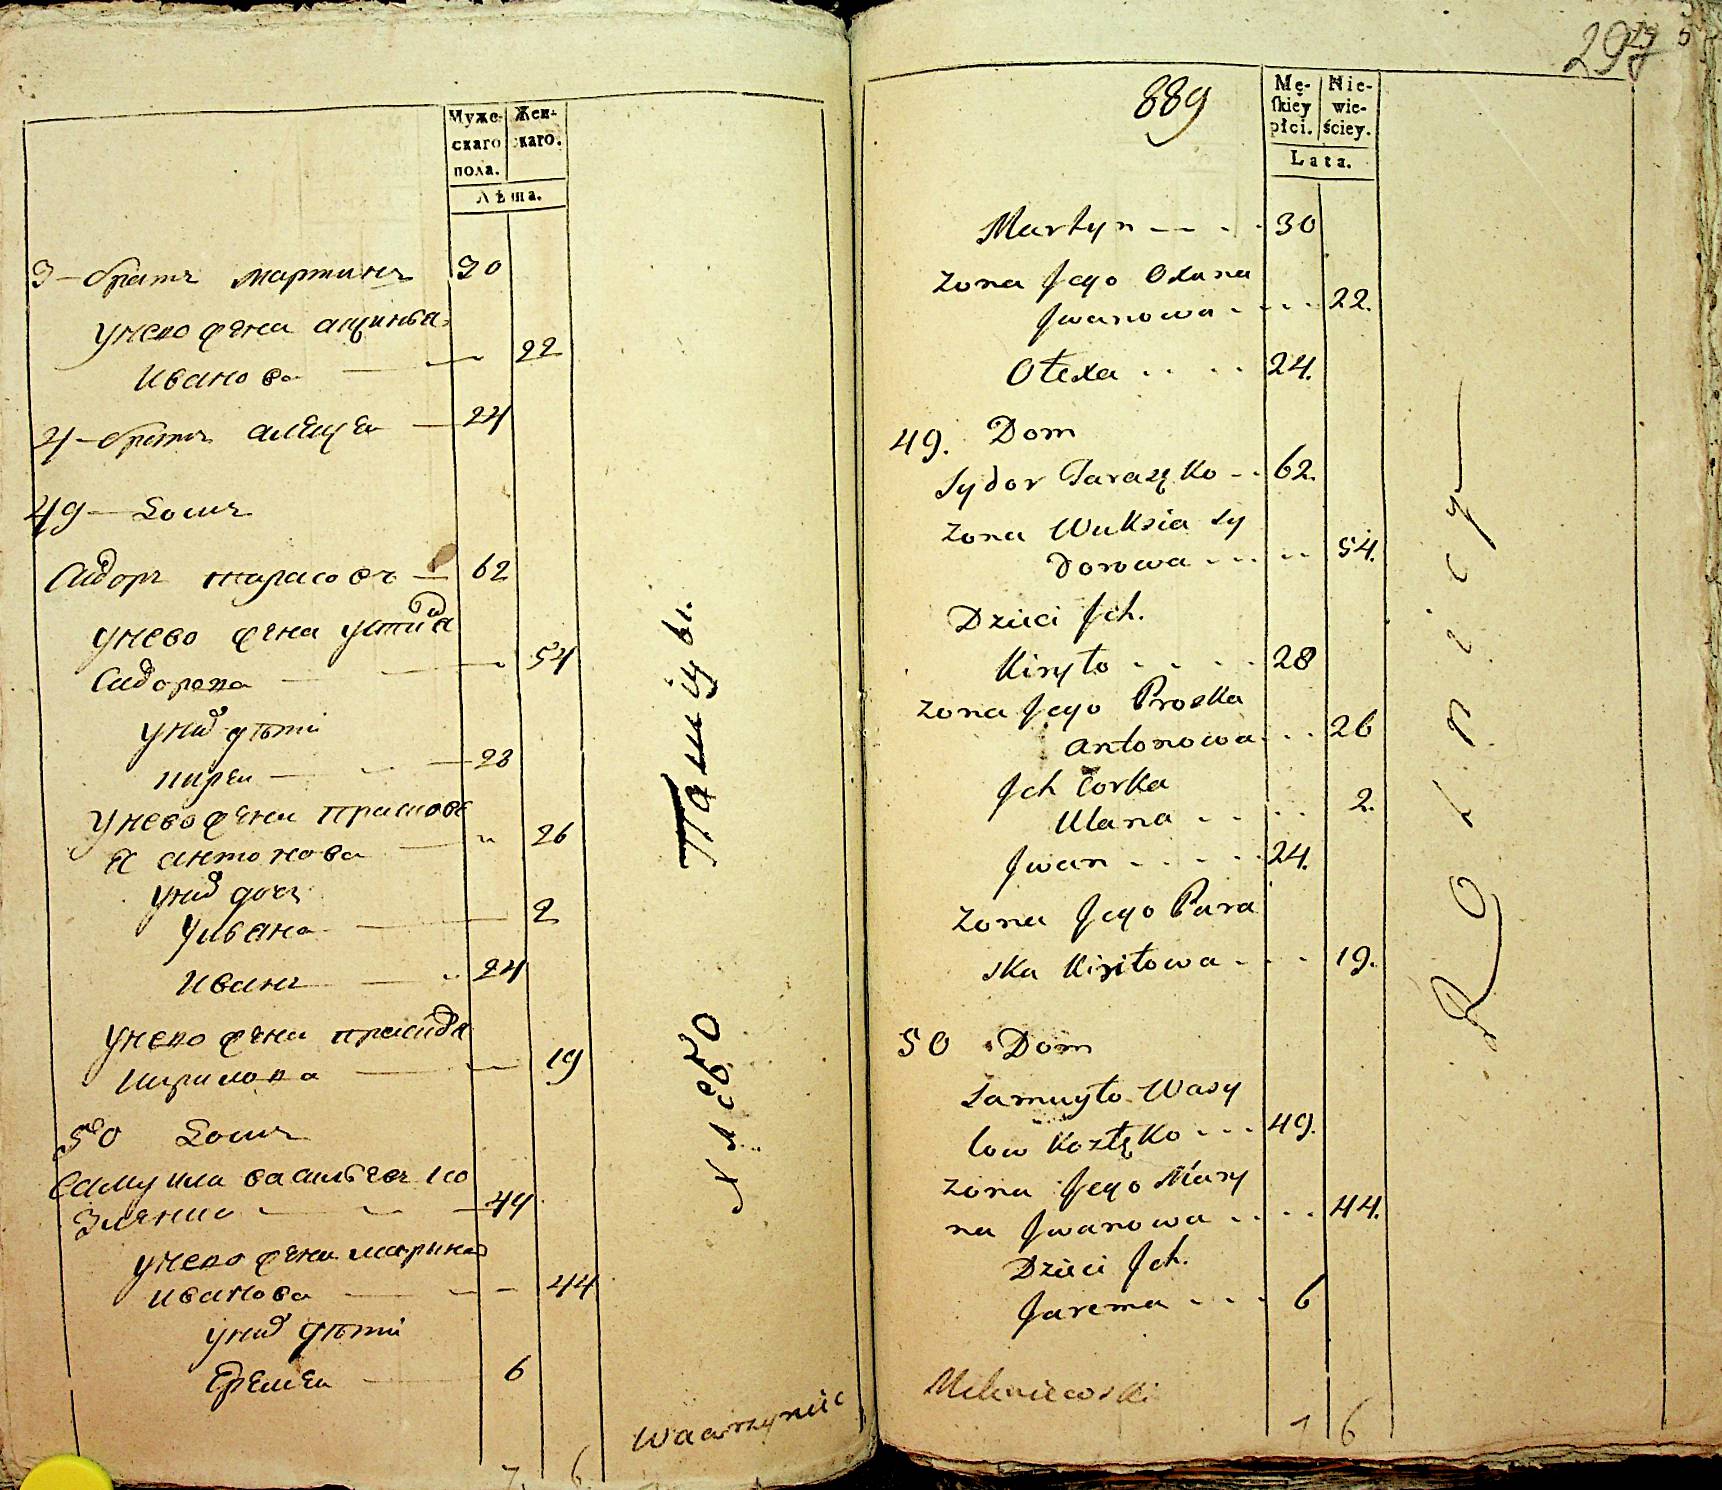 Муже-
скаго
пола.
Жен-
скаго.
Лѣта.
3 — братъ мартинъ 30
унево жена
Иванова — 22
4 — братъ алексеи — 24
49 — Домъ
Сидоръ тарасовъ — 62
унево жена устиа
Сидорова — 54
униⷯ дѣти
кирей — 28
унево жена прасков
я антонова — 26
униⷯ дочь
ульяна — 2
Иванъ — 24
унево жена
кирилова — 19
50 Домъ
Самуила васильевъ ко
зленко — 49
унево жена марина
иванова — 44
униⷯ дѣти
Еремеи — 6
Пашцы.
хлебо
7. 6
Wawrzyniec
297
5
889
Mę-
skiey
płci.
Nie-
wie-
ściey.
Lata.
Martyn — — . . 30
Zona Jego Oxana
Jwanowa . . . . 22.
Ołexa . . . . 24.
49. Dom
Sydor Taraszko — . 62.
Zona Wuksia Sy
dorowa . . . . . 54.
Dzieci Jch.
Kiryło . . . . 28
Zona Jego Proska
Antonowa . . . 26
Jch Corka
Ulana . . . . 2.
Jwan . . . . . 24.
Zona Jego Para
ska Kiryłowa . . . 19.
50 Dom
Samuyło Wasy
low Kozłęko . . . 49.
Zona Jego Mary
na Jwanowa . . . . 44.
Dzieci Jch.
Jarema . . . . 6
Rolnicy
7 6